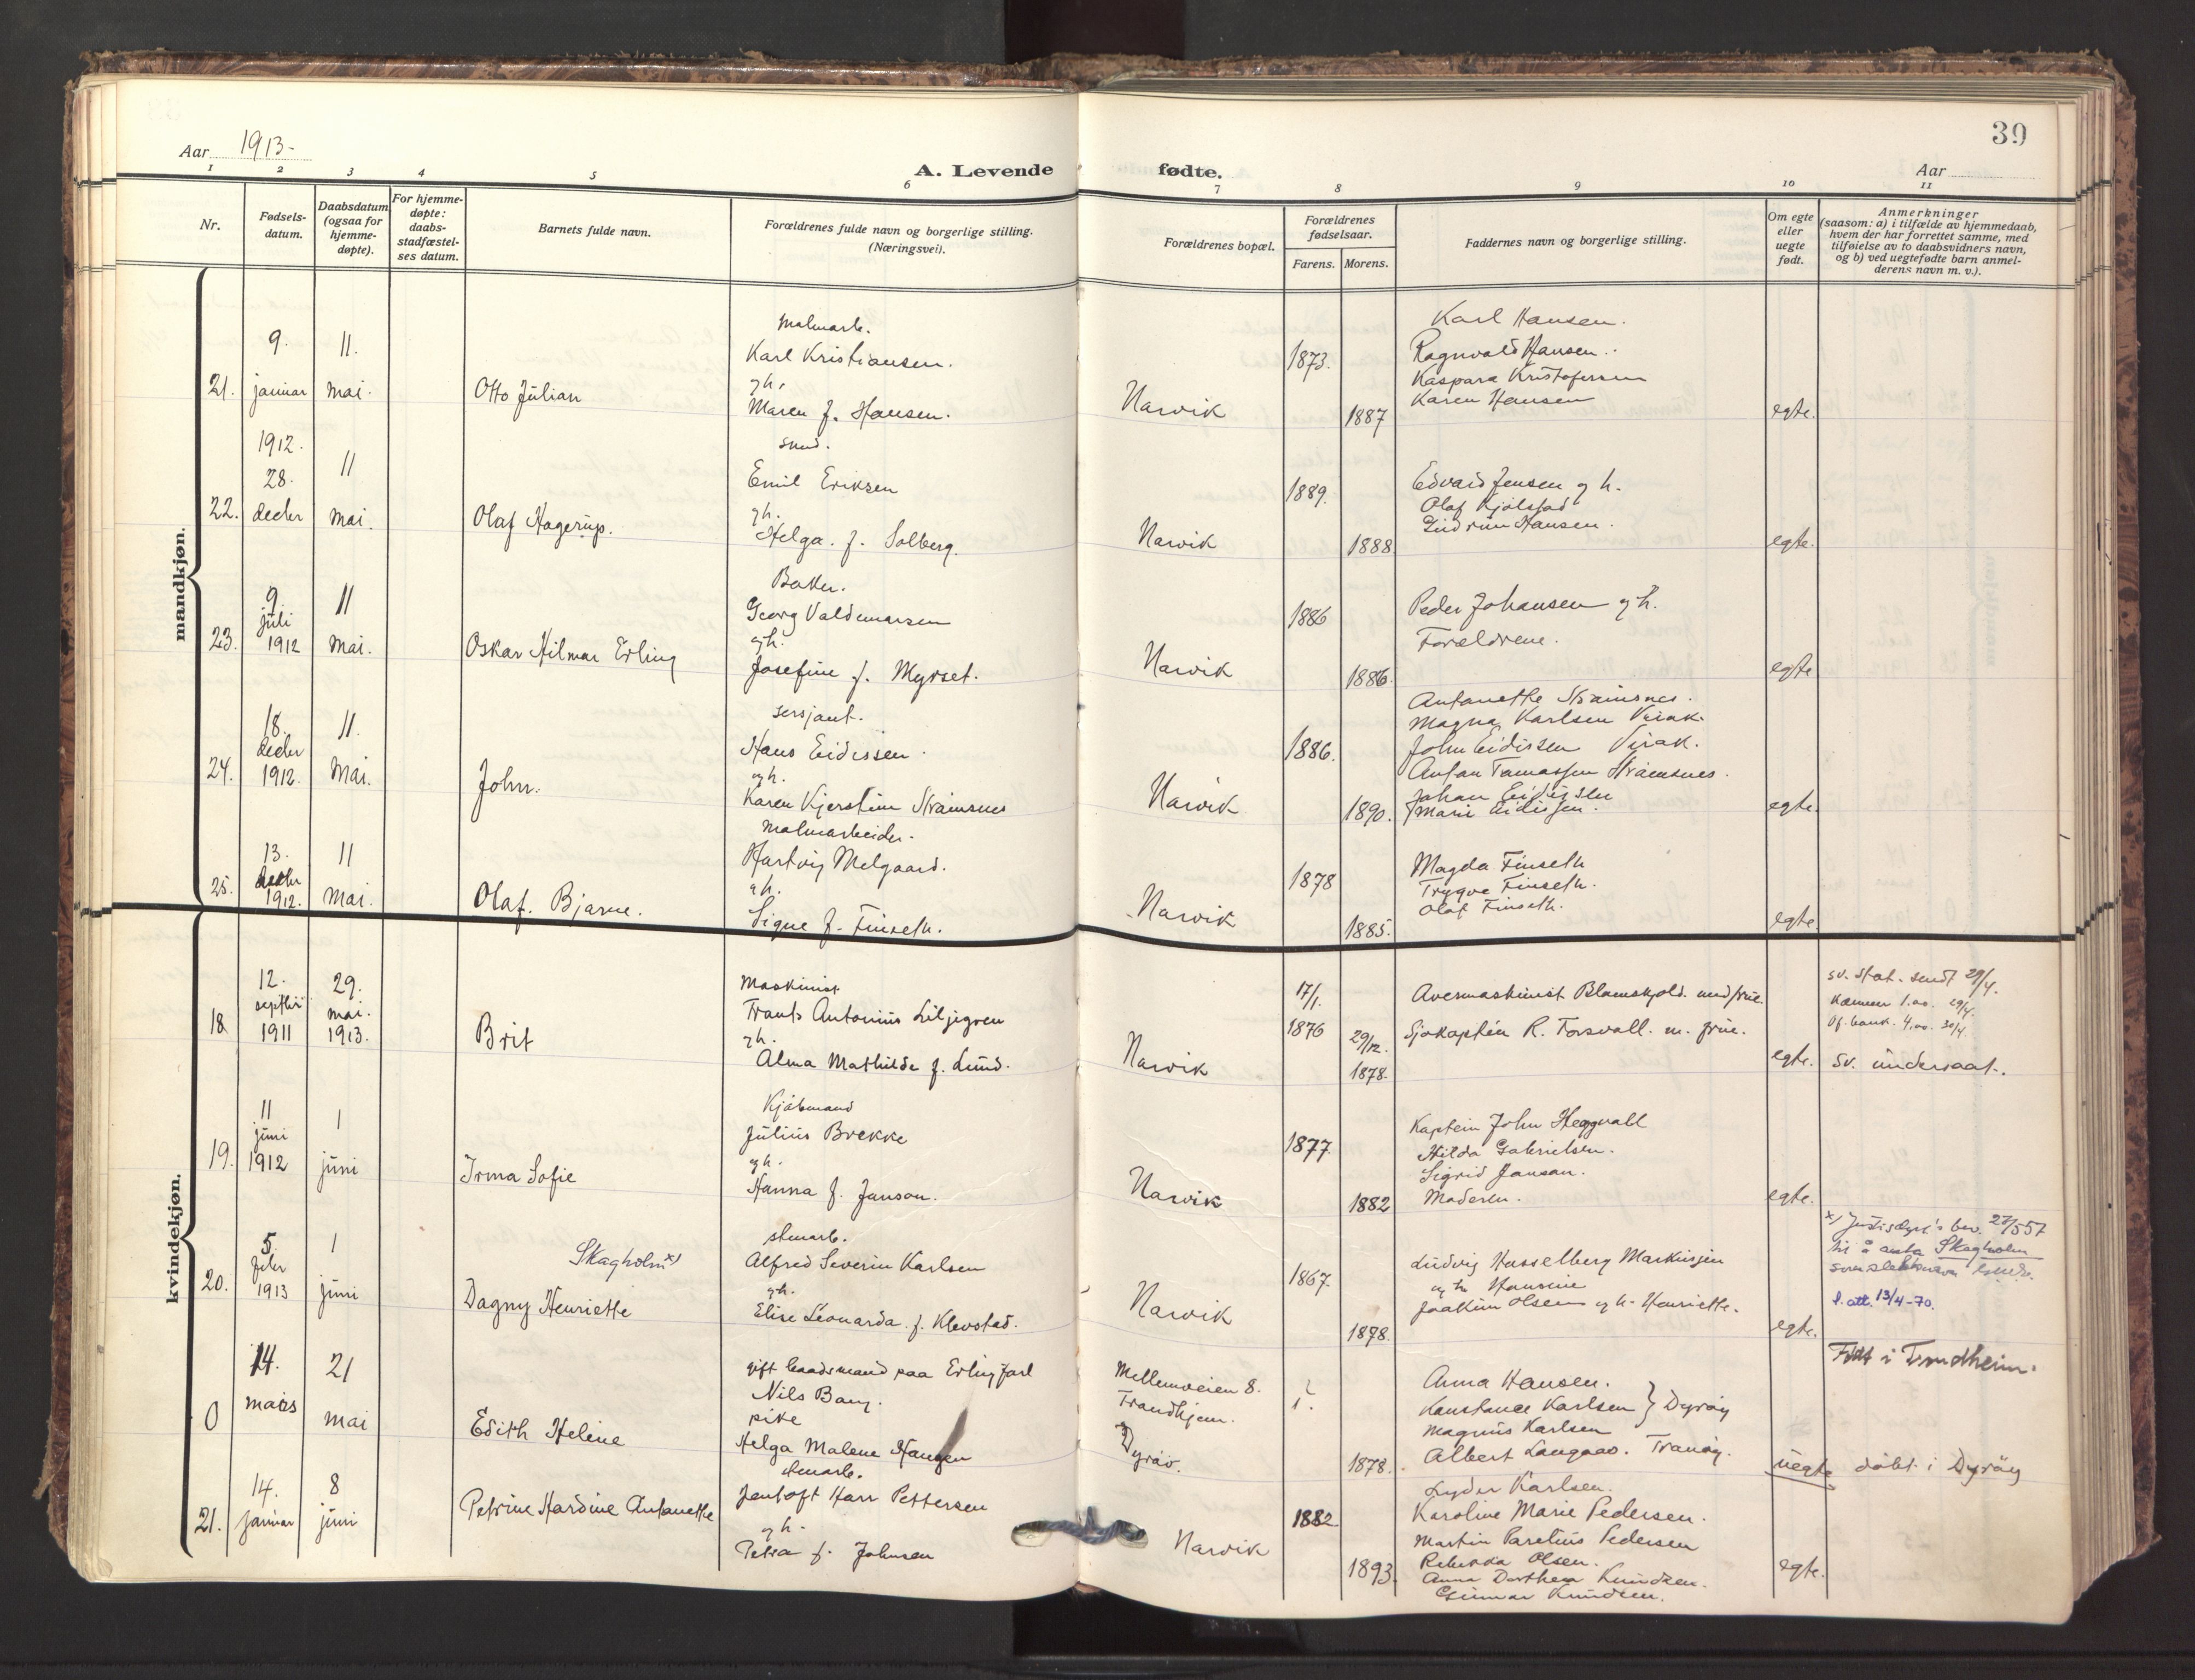 39
Aar 1913-
A. Levende fødte.
Aar
1 2 3 4 5 6 7 8 9 10 11
Nr.
Fødsels-
datum.
Daabsdatum
(ogsaa for
hjemme-
døpte).
For hjemme-
døpte:
daabs-
stadfæstel-
ses datum.
Barnets fulde navn.
Forældrenes fulde navn og borgerlige stilling.
(Næringsvei).
Forældrenes bopæl.
Forældrenes
fødselsaar.
Farens. Morens.
Faddernes navn og borgerlige stilling.
Om egte
eller
uegte
født.
Anmerkninger
(saasom: a) i tilfælde av hjemmedaab,
hvem der har forrettet samme, med
tilføielse av to daabsvidners navn,
og b) ved uegtefødte barn anmel-
derens navn m. v.).
mandkjøn.
21.
9.
januar
11.
mai.
Otto Julian
Malmarb.
Karl Kristiansen.
og h.
Maren f. Hansen.
Narvik
1873.
1887
Karl Hansen.
Ragnvald Hansen.
Kaspara Kristofersen
Karen Hansen
egte.
22.
1912.
28.
decbr
11
mai.
Olaf Hagerup.
smed.
Emil Eriksen
og h.
Helga f. Solberg.
Narvik
1889.
1888
Edvard Jensen og h.
Olaf Kjølstad
Gudrun Hansen.
egte.
23.
9
juli
1912
11
mai.
Oskar Hilmar Erling
Baker.
Georg Valdemarsen
og h.
Josefine f. Myrset.
Narvik
1886
1886.
Peder Johansen og h.
Forældrene.
egte
24.
18.
decbr
1912.
11.
Mai.
John.
sersjant.
Hans Eidissen.
og h.
Karen Kjerstine Straumsnes
Narvik
1886.
1890.
Antonette Straumsnes.
Magna Karlsen Virak.
John Eidissen Virak.
Anton Tomassen Straumsnes.
Johan Eidissen
Marie Eidissen.
egte.
25.
13.
decbr
1912.
11
Mai.
Olaf. Bjarne.
Malmarbeider.
Hartvig Melgaard.
og h.
Signe f. Finseth.
Narvik
1878
1885.
Magda Finseth
Trygve Finseth.
Olaf Finseth.
egte
kvindekjøn.
18
12.
septbr
1911
29.
mai.
1913.
Brit
Maskinist
Frants Antonius Liljegren
og h.
Alma Mathilde f. Lund.
Narvik
17/1.
1876
29/12.
1878.
Avesmaskinist Blomskjold. med frue.
Sjøkaptein R. Torsvall. m. frue.
egte.
sv. stat. sendt 29/4.
29/4.
4.00. 30/4.
sv. undersaat.
19.
11
juni
1912
1
juni
Irma Sofie
Kjøbmand
Julius Brekke
og h.
Hanna f. Janson.
Narvik
1877
1882
Kaptein John Heggvall
Hilda Gabrielsen.
Sigrid Janson.
Moderen.
egte.
20.
5.
febr
1913
1
juni
Skagholm x)
Dagny Henriette
stuarb.
Alfred Severin Karlsen
og h.
Elise Leonarda f. Klevstad.
Narvik
1867.
1878.
Ludvig Hasselberg Markussen
og h. Hansine
Joakim Olsen og h. Henriette.
egte.
x) Justisdep's bev. 27/5 57
til å anta Skagholm
som slektsnavn
f. att. 13/4-70.
0
14.
mars
21
mai
Edith Helene
gift baadsmand paa Erling Jarl
Nils Bang.
pike
Helga Malene Haugen
Mellemveien 8.
Trondhjem.
Dyrøy.
?
1878.
Anna Hansen.
Konstance Karlsen } Dyrøy
Magnus Karlsen
Albert Langaas. Tranøy.
uegte
Født i Trondheim.
døbt i Dyrøy
21.
14.
januar
8
juni
Petrine Hardine Antonette
stuarb.
Jentoft Harr Pettersen
og h.
Petra f. Johnsen
Narvik
1882
1893.
Lyder Karlsen.
Karoline Marie Pedersen.
Martin Parelius Pedersen
Rebekka Olsen.
Anna Dorthea Knudsen.
Gunnar Knudsen.
egte.